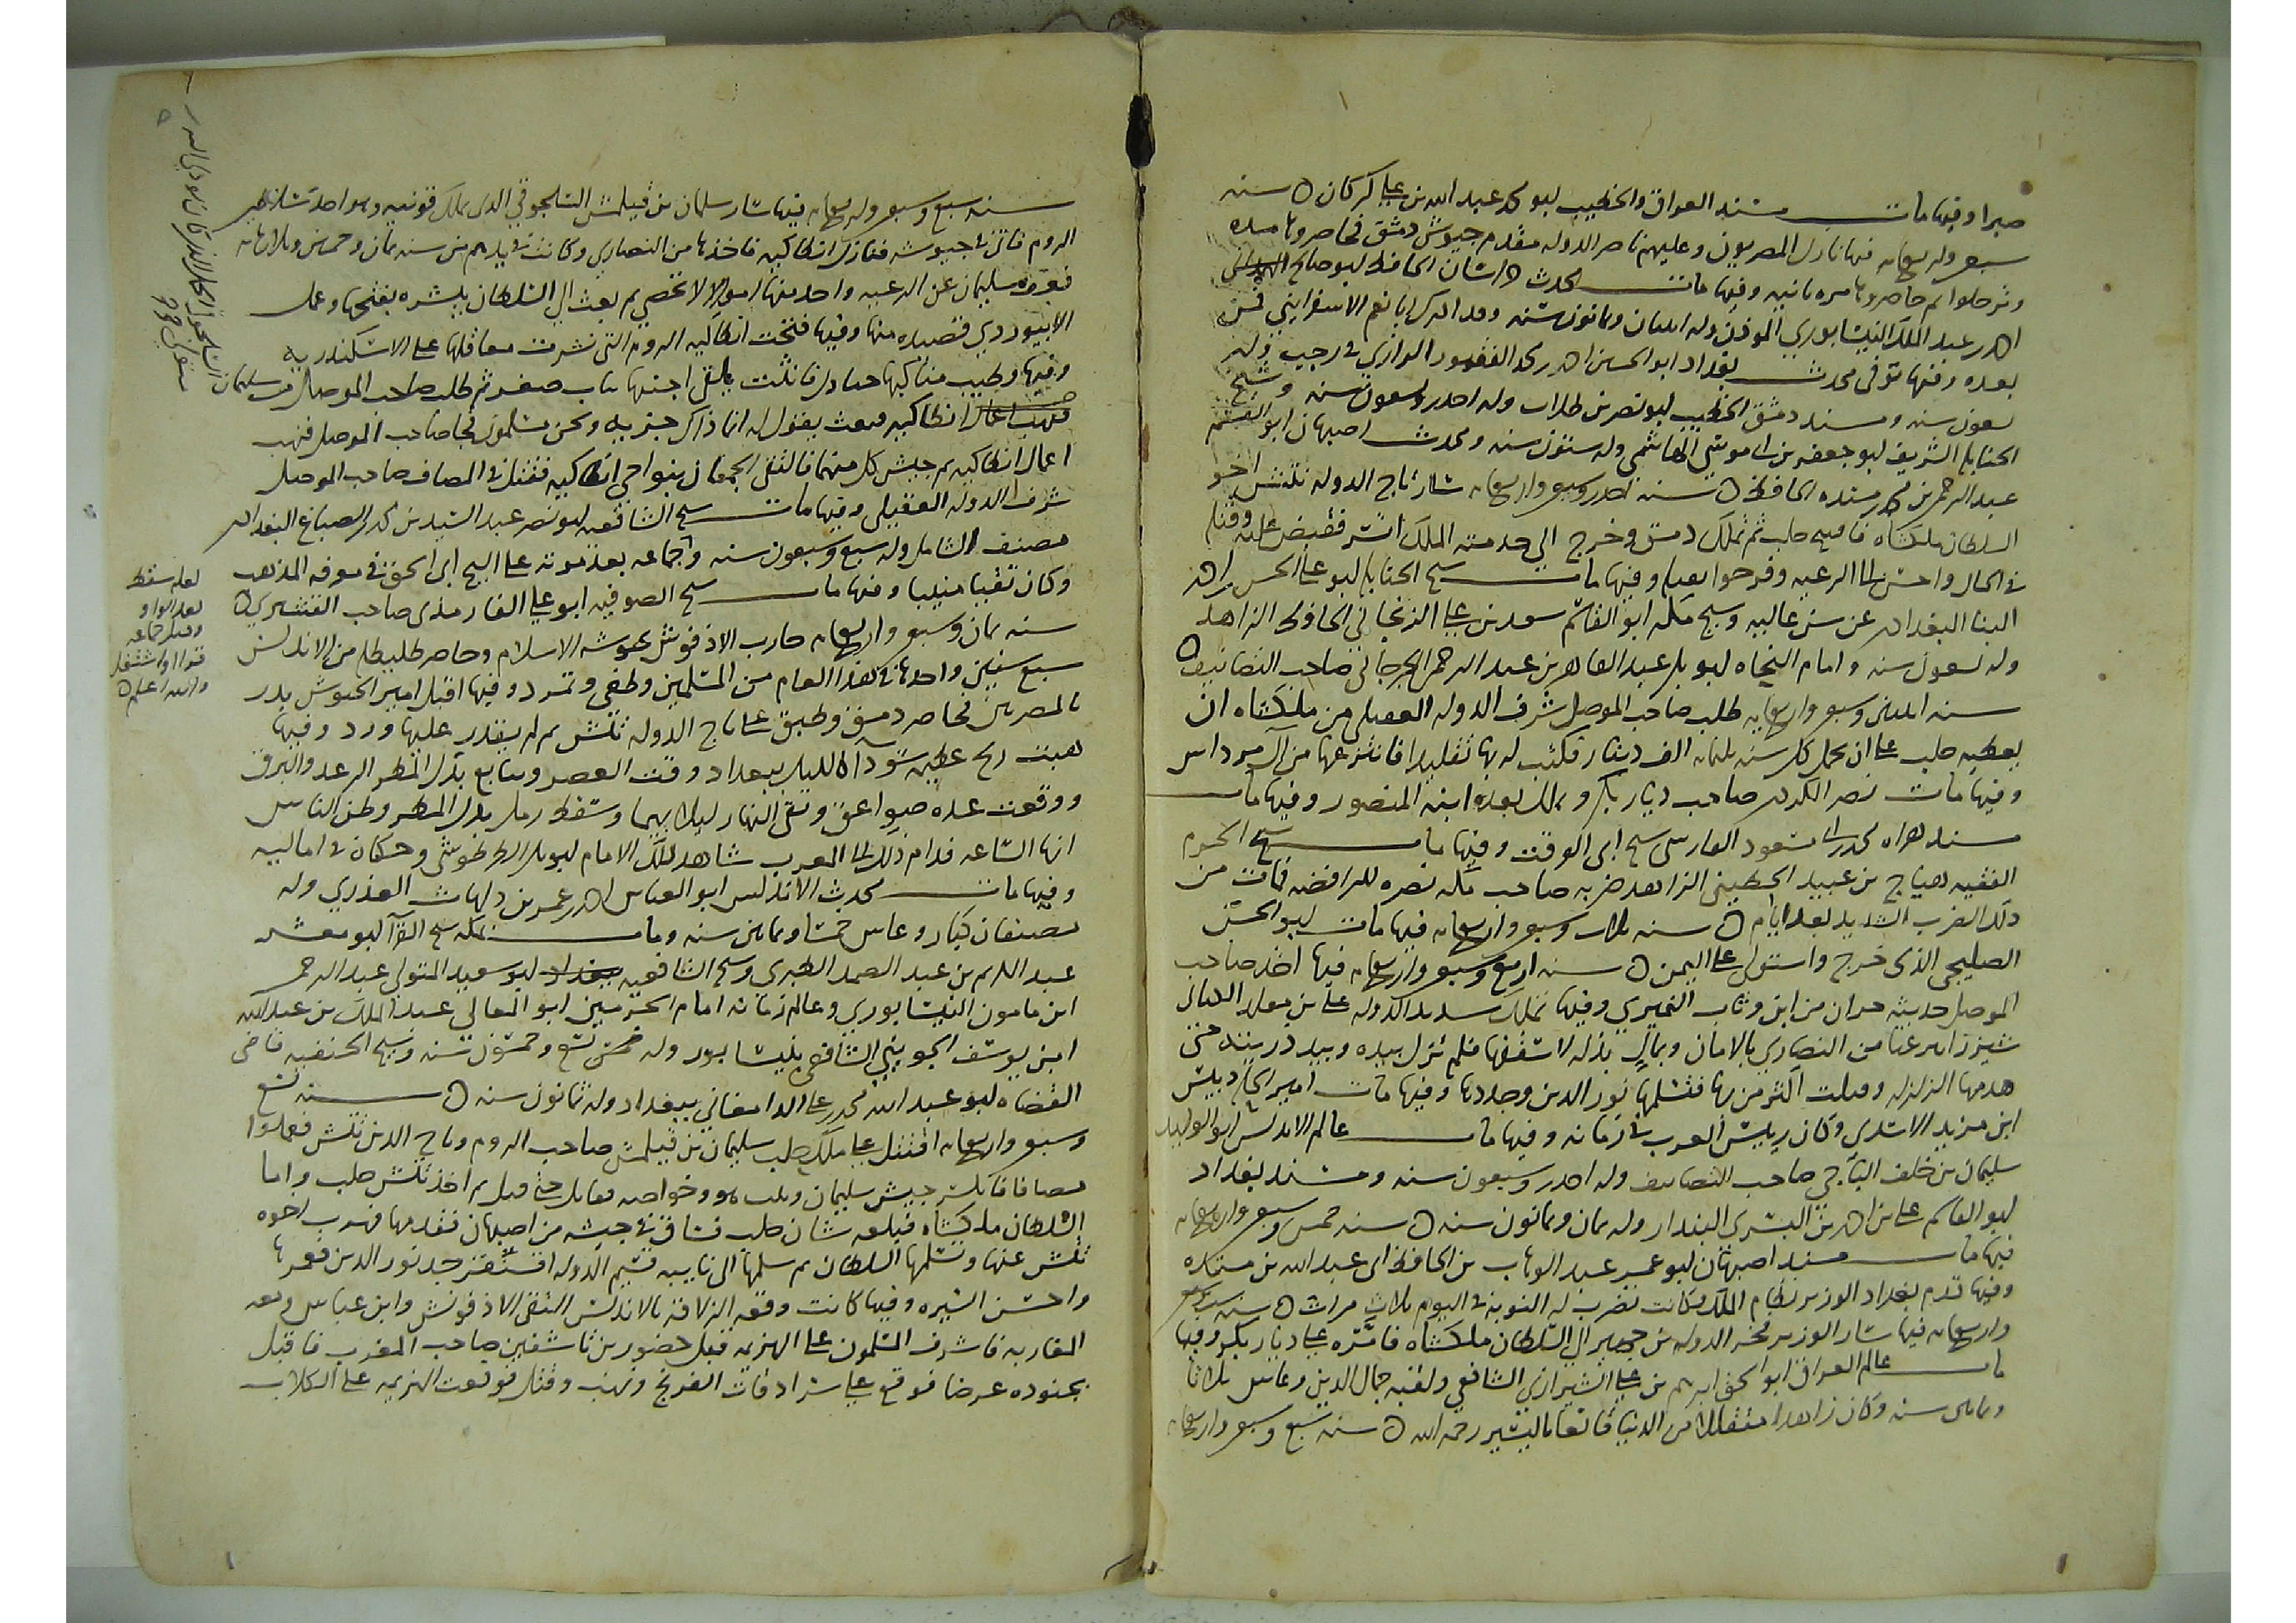 صبرا وفيها مات مسند العراق والخطيب ابو محمد عبد الله بن علي كركان ه سنه
سبع وله يعمايه فيها نازل المصريون وعليهم ناصر الدوله مقدم جيوش دمشق فحاصروها مده
وترحلوا ثم حاصروها مره ثانيه وفيها مات محدث خراسان الحافظ ابو صالح
احمد بن عبد الملك النيسابوري الموذن وله اثنتان وثمانون سنه وقد ادرك ابا نعيم الاسفرايني فمن
بعده وفيها توفى محدث بغداد ابو الحسين احمد بن محمد بن النقور البزاز في رجب وله
تسعون سنه ومسند دمشق الخطيب ابو نصر بن طلاب وله احدى وتسعون سنه وشيخ
الحنابله الشريف ابو جعفر بن ابي موسى الهاشمي وله ستون سنه ومحدث اصبهان ابو القسم
عبد الرحمن بن محمد بن منده الحافظ ه سنه احدى وسبعين واربعمايه سار تاج الدوله تتش اخو
السلطان ملكشاه فاخذ حلب ثم تملك دمشق وخرج الى خدمته الملك اتسز فقبض عليه وقتله
في الحال واحسن الى الرعيه وفرحوا بعدله وفيها مات شيخ الحنابله ابو علي الحسن بن احمد
البنا البغدادي عن سن عاليه وشيخ مكه ابو القاسم سعد بن علي الزنجاني الحافظ الزاهد
وله تسعون سنه وامام النحاه ابو بكر عبد القاهر بن عبد الرحمن الجرجاني صاحب التصانيف ه
سنه اثنتين وسبعين واربعمايه طلب صاحب الموصل شرف الدوله العقيلي من ملكشاه ان
يعطيه حلب على ان يحمل كل سنه ثلثمايه الف دينار فكتب له بها تقليدا فانتزعها من آل مرداس
وفيها مات نصر الكردي صاحب ديار بكر وتملك بعده ابنه المنصور وفيها مات
مسند هراه محمد بن ابي مسعود الفارسي شيخ ابي الوقت وفيها مات شيخ الحرم
الفقيه هياج بن عبيد الحطيني الزاهد ضربه صاحب مكه نصره للرافضه فمات من
ذلك الضرب الشديد بعد ايام ه سنه ثلاث وسبعين واربعمايه فيها مات ابو الحسن
الصليحي الذي خرج واستولى على اليمن ه سنه اربع وسبعين واربعمايه فيها اخذ صاحب
الموصل مدينه حران من ابن وثاب النميري وفيها تملك سديد الدوله علي بن مقلد الكناني
شيزر انتزعها من النصاري بالامان وبمال بذله لاسقفها فلم تزل بيده وبيد ذريته حتى
هدمها الزلزله وقتلت اكثر من بها فتسلمها نور الدين وجددها وفيها مات امير الحله دبيس
ابن مزيد الاسدي وكان رييس العرب في زمانه وفيها مات عالم الاندلس ابو الوليد
سليمان بن خلف الباجي صاحب التصانيف وله احدى وسبعون سنه ومسند بغداد
ابو القاسم علي بن احمد بن البسري البندار وله ثمان وثمانون سنه ه سنه خمس وسبعين واربعمايه
فيها مات مسند اصبهان ابو عمر عبد الوهاب بن الحافظ ابي عبد الله بن منده
وفيها قدم بغداد الوزير نظام الملك وكانت تضرب له النوبه في اليوم ثلاث مرات ه سنه ست وسبعين
واربعمايه فيها سار الوزير فخر الدوله بن جهير الى السلطان ملكشاه فامره على ديار بكر وفيها
مات عالم العراق ابو اسحق ابرهيم بن علي الشيرازي الشافعي ولقبه جمال الدين وعاش ثلاثا
وثمانين سنه وكان زاهدا متقللا من الدنيا قانعا باليسير رحمه الله ه سنه سبع وسبعين واربعمايه
سنه سبع وسبعين واربعمايه فيها سار سليمان بن قتلمش السلجوقي الذي تملك قونيه وهو احد سلاطين
الروم فاتى في جيوشه فنازل انطاكيه فاخذها من النصاري وكانت في يدهم من سنه ثمان وخمسين وثلاثمايه
فعف سليمان عن الرعيه واخذ منها اموالا لا تحصى ثم بعث الى السلطان يبشره بفتحها وعمل
الابيوردي قصيده منها وفيها فتحت انطاكيه الروم التي نشرت معاقلها على الاسكندريه
وفيها وطيت مناكبها جيادك فانثنت تلقى اجنتها بنات صفر ثم طلب صاحب الموصل من سليمان
انطاكيه فبعث يقول له انما ذاك جزيه ونحن مسلمون فجا صاحب الموصل فنهب
اعمال انطاكيه ثم جيش كل منهما فالتقى الجمعان بنواحي انطاكيه فقتل في المصاف صاحب الموصل
شرف الدوله العقيلي وفيها مات شيخ الشافعيه ابو نصر عبد السيد بن محمد بن الصباغ البغدادي
مصنف الشامل وله سبع وسبعون سنه وجماعه بعد موته على الشيخ ابي اسحق في معرفه المذهب
وكان ثقيا منيبا وفيها مات شيخ الصوفيه ابو علي الفارمذي صاحب القشيري ه
سنه ثمان وسبعين واربعمايه حارب الاذفونش جيوشه الاسلام وحاصر طليطله من الاندلس
سبع سنين واخذها في هذا العام من المسلمين وطغى وتمرد وفيها اقبل امير الجيوش بدر
بالمصريين فحاصر دمشق وضيق على تاج الدوله تتش ثم لم يقدر عليها ورد وفيها
هبت ريح عظيمه سودا الليله ببغداد وقت العصر وتتابع بذلك المطر الرعد والبرق
ووقعت عده صواعق وبقى النهار ليلا بهيما وسقط رمل بدل المطر وظن الناس
انها الساعه فدام ذلك الى المغرب شاهد ذلك الامام ابو بكر الطرطوشي وحكاه في اماليه
وفيها مات محدث الاندلس ابو العباس احمد بن عمر بن دلهاث العذري وله
تصنيفان كبار وعاش خمسا وثمانين سنه ومات بمكه شيخ القرا ابو معشر
عبد الكريم بن عبد الصمد الطبري وشيخ الشافعيه ببغداد ابو سعيد المتولي عبد الرحمن
ابن مامون النيسابوري وعالم زمانه امام الحرمين ابو المعالي عبد الملك بن عبد الله
ابن يوسف الجويني الشافعي بنيسابور وله تسع وخمسون سنه وشيخ الحنفيه قاضي
القضاه ابو عبد الله محمد بن علي الدامغاني ببغداد وله ثمانون سنه ه سنه تسع
وسبعين واربعمايه اقتتل على ملك حلب سليمان بن قتلمش صاحب الروم وتاج الدين تتش فعملوا
مصافا فانكسر جيش سليمان وثبت هو وخواصه فقاتل حتى قتل ثم اخذ تتش حلب واما
السلطان ملكشاه فبلغه شان حلب فساق في جيشه من اصبهان فقدمها فهرب اخوه
تتش عنها وتسلمها السلطان ثم سلمها الى نايبه قسيم الدوله اقسنقر جد نور الدين فعمرها
واحسن السيره وفيها كانت وقعه الزلاقه بالاندلس التقى الاذفونش وابن عباس ومعه
المغاربه فاشرف المسلمون على الهزيمه قبل حضور بن تاشفين صاحب المغرب فاقبل
بجنوده عرضا فوقع على سرادقات الفرنج ونهب وقتل فوقعت الهزيمه على الكلاب
لعله سقط
بعد الواو
وقبل جماعه
قراوا او اشتغل
والله اعلم ه